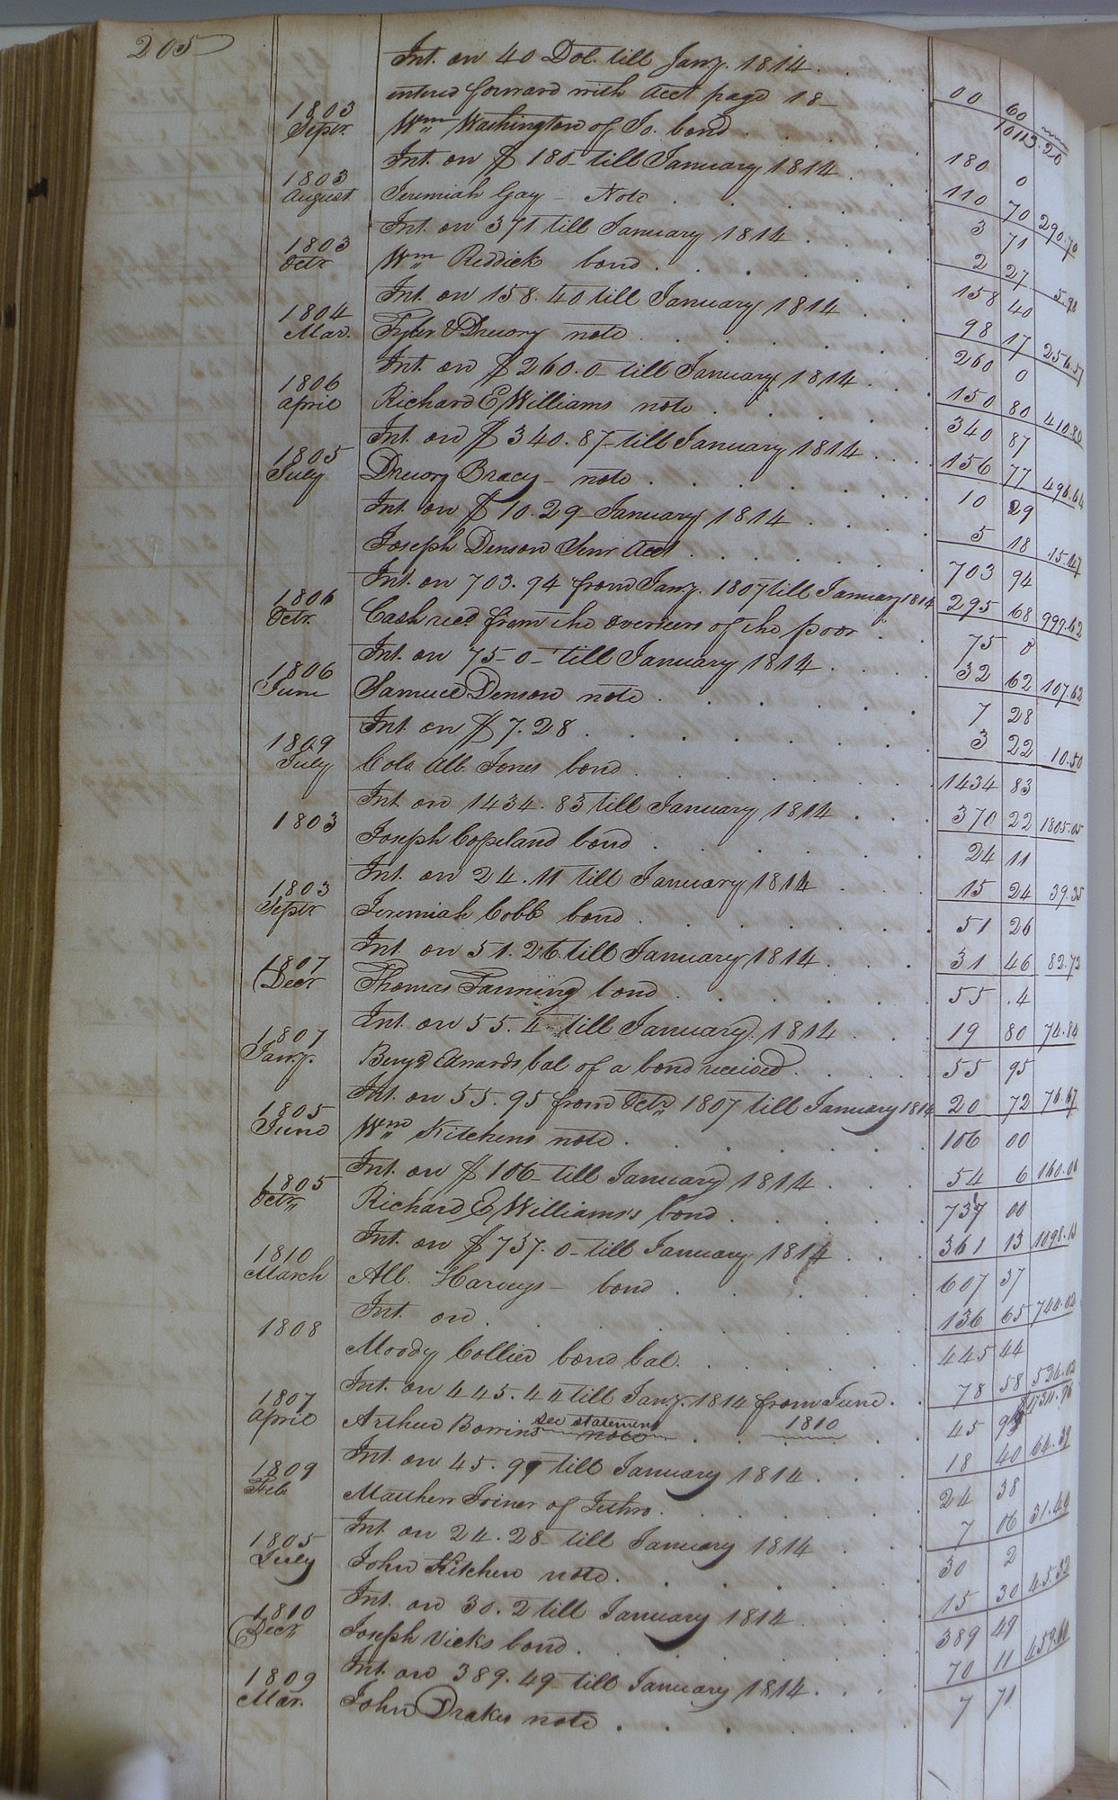 205
Int. on 40 Dol. till Jany. 1814 00 60
entered forward with acct page 18 10113.20
1803 Septr Wm Washington of Jo. bond 180 0
Int. on $ 180 till January 1814 110 70 290.70
1803 August Jeremiah Gay - Note 3 71
Int. on 371 till January 1814 2 27 5.98
1803 Octr Wm Reddick bond 158 40
Int. on 158.40 till January 1814 98 17 256.57
1804 Mar. Tyler & Drewry note 260 0
Int. on $ 260.0 till January 1814 150 80 410.80
1806 april Richard E Williams note 340 87
Int. on $ 340.87 till January 1814 156 77
1805 July Drewry Bracy - note 10 29
Int. on $ 10.29 January 1814 5 18 15.47
Joseph Denson Senr acct 703 94
Int. on 703.94 from Jany. 1807 till January 1814 295 68 999.62
1806 Octr. Cash recd from the overseers of the poor 75 0
Int. on 75-0- till January 1814 32 62 107.62
1806 June Samuel Denson note 7 28
Int. on $ 7.28 3 22 10.50
1809 July Colo. Alb. Jones bond 1434 83
Int. on 1434.83 till January 1814 370 22 1805.05
1803 Joseph Copeland bond 24 11
Int. on 24.11 till January 1814 15 24 39.35
1803 Septr Jeremiah Cobb bond 51 26
Int. on 51.26 till January 1814 31 46 82.72
1807 Decr Thomas Fanning bond 55 .4
Int. on 55.4 till January 1814 19 80 74.84
1807 Jany. Benja Edwards bal of a bond received 55 95
Int. on 55.95 from Octr 1807 till January 1814 20 72 76.67
1805 June Wm Kitchens note 106 00
Int. on $ 106 till January 1814 54 6 160.06
1805 Octr Richard E Williams's bond 737 00
Int. on $ 737.0 till January 1814 361 13 1098.13
1810 March Alb. Harveys - bond 607 37
Int. on 136 65 744.02
1808 Moody Collier bond bal. 445 44
Int. on 445.44 till Jany. 1814 from June 1810 78 58 524.02
1807 april Arthur Bowins see statement note 45 99
Int. on 45.99 till January 1814 18 40 64.39
1809 Feb Matthew Joiner of Jethro 24 38
Int. on 24.28 till January 1814 7 06 31.44
1805 July John Kitchen note 30 2
Int. on 30.2 till January 1814 15 30 45.32
1810 Decr Joseph Vicks bond 389 49
Int. on 389.49 till January 1814 70 11 459.60
1809 Mar. John Drakes note 7 71